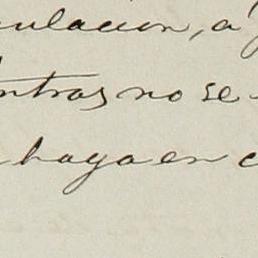 ulacion, a
ntras no se
haga en